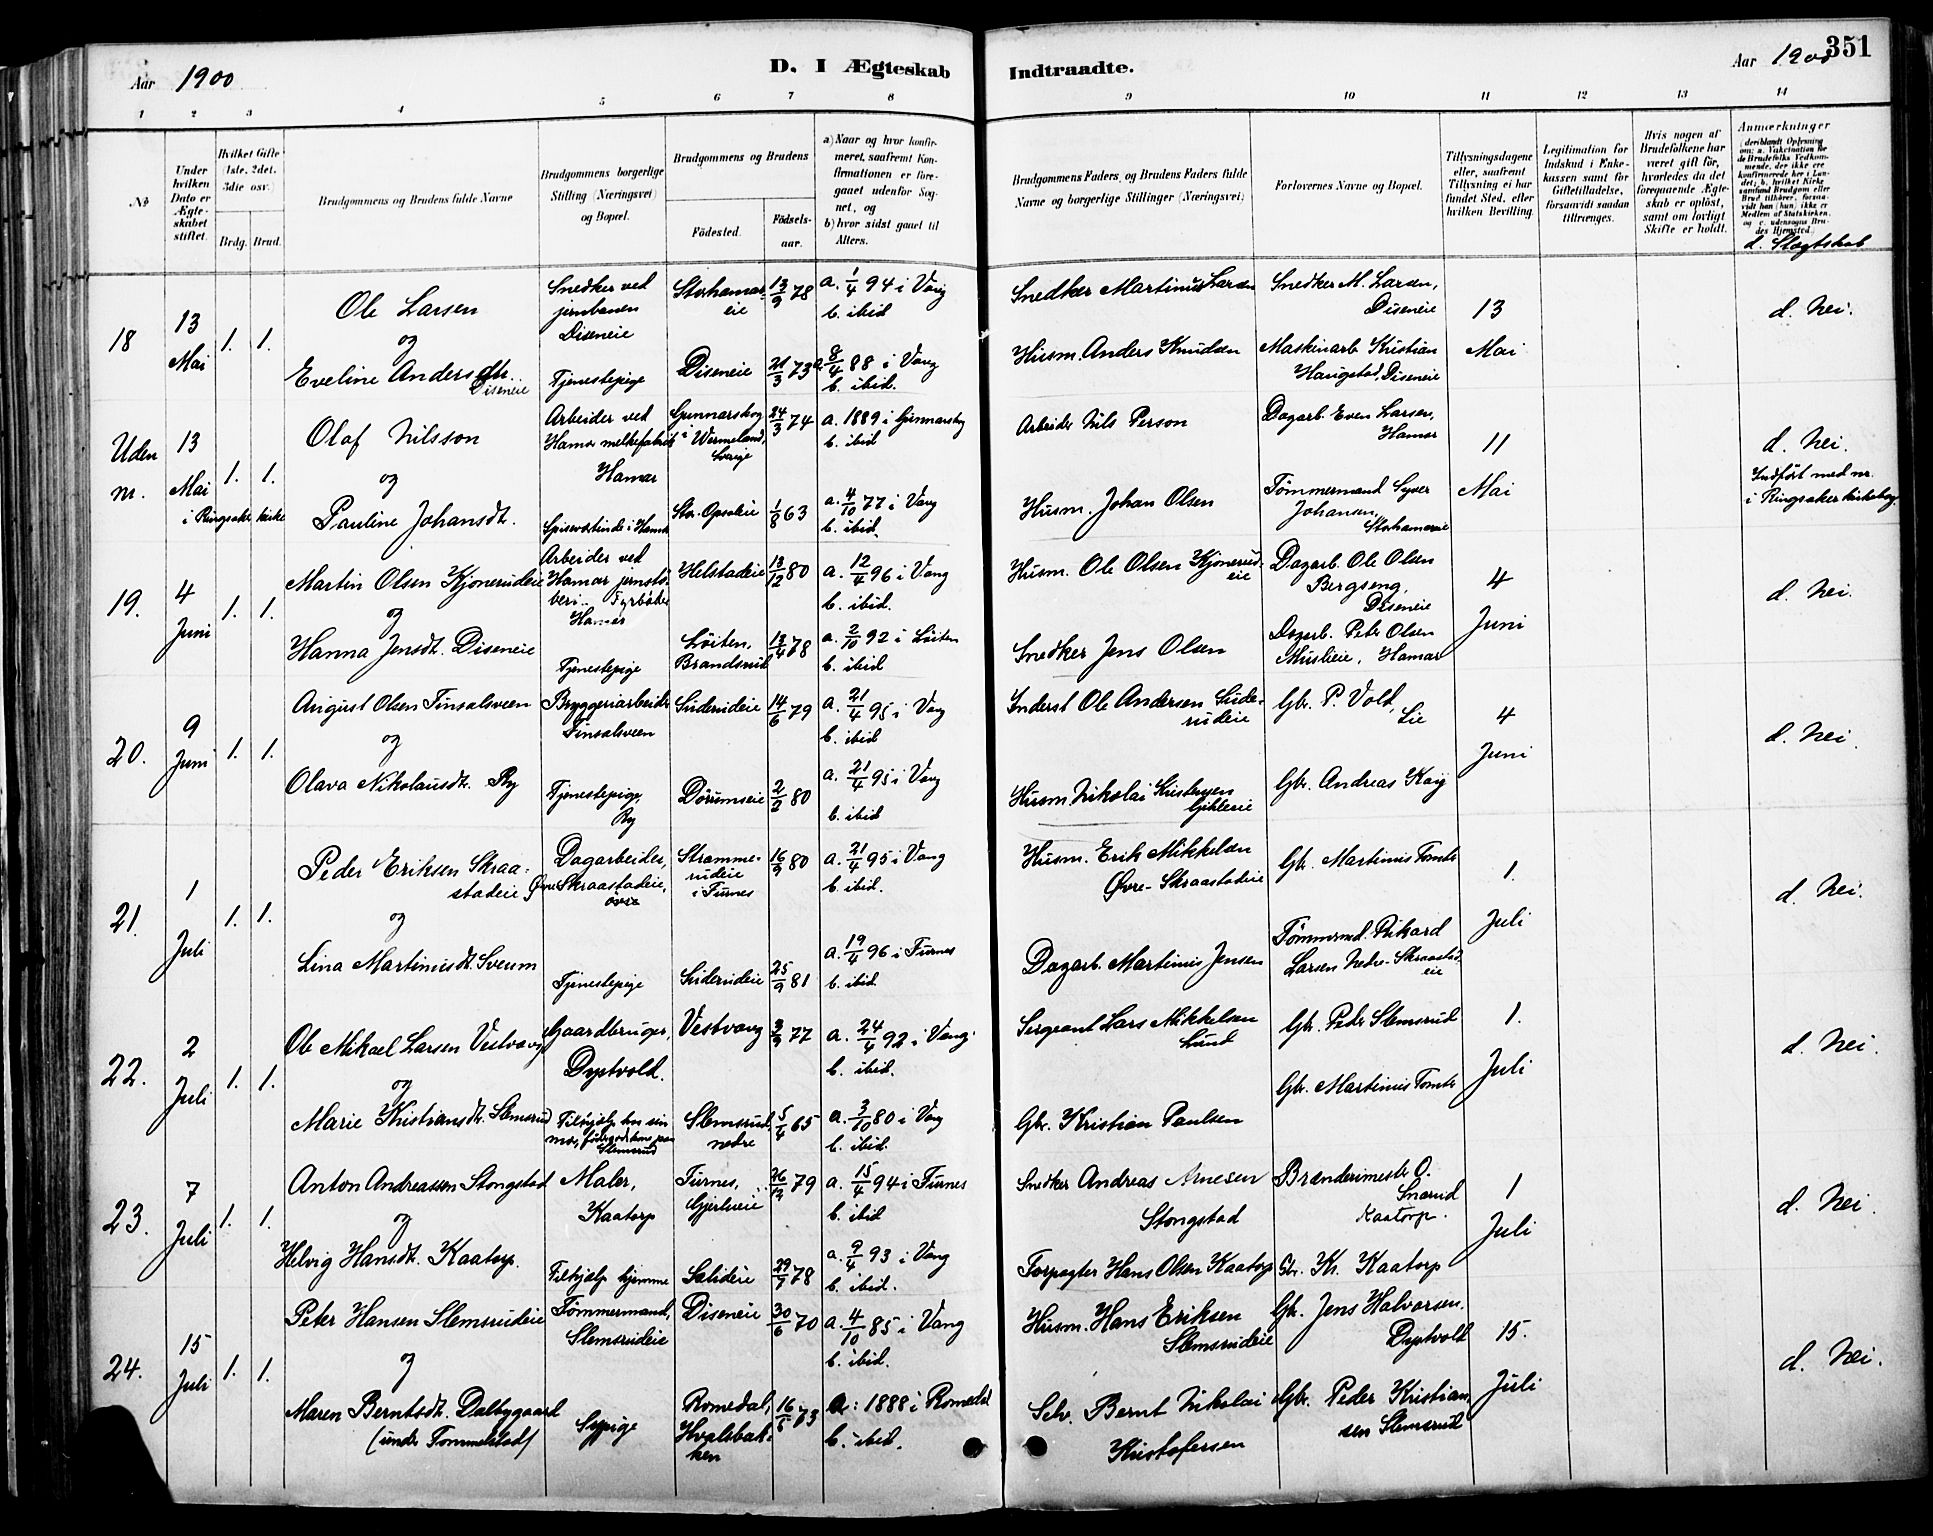 Aar 1900
D. I Ægteskab
Indtraadte.
Aar 1900
351
1 2 3 4 5 6 7 8 9 10 11 12 13 14
No
Under hvilken Dato er Ægteskabet stiftet.
Hvilket Gifte (1ste, 2det, 3die osv.)
Brdg. Brud.
Brudgommens og Brudens fulde Navne
Brudgommens borgerlige Stilling (Næringsvei) og Bopæl.
Brudgommens og Brudens
Födested.
Födsels-aar.
a) Naar og hvor konfirmeret, saafremt Konfirmationen er foregaaet udenfor Sognet, og
b) hvor sidst gaaet til Alters.
Brudgommens Faders, og Brudens Faders fulde Navne og borgerlige Stillinger (Næringsvei)
Forlovernes Navne og Bopæl.
Tillysningsdagene eller, saafremt Tillysning ei har fundet Sted, efter hvilken Bevilling.
Legitimation for Indskud i Enkekassen samt for Giftetilladelse, forsaavidt saadan tiltrænges.
Hvis nogen af Brudefolkene har været gift för, hvorledes da det foregaaende Ægteskab er oplöst, samt om lovligt Skifte er holdt.
Anmærkninger
d. Slægtskab
18
13 Mai
1. 1.
Ole Larsen
og
Eveline Andersdtr.
Diseneie
Snedker ved
jernbanen
Diseneie
Tjenestepige
Storhamar-
eie
Diseneie
13/9 78
21/3 73
a. 1/4 94 i Vang
b. ibid
a. 8/4 88 i Vang
b. ibid.
Snedker Martinus Larsen
Husm. Anders Knudsen
Snedker M. Larsen,
Diseneie
Maskinarb. Kristian
Haugstad, Diseneie
13
Mai
d. Nei.
Uden nr.
13 Mai
i Ringsaker kirke
1. 1.
Olaf Nilsson
og
Pauline Johansdt.
Arbeider ved
Hamar melkefabrik
Hamar
Spisevertinde i Hamar
Gunnarskog
i Wermeland,
Sverige
Stor-Opsaleie
24/3 74
1/8 63
a. 1889 i Gunnarskog
b. ibid
a. 4/10 77 i Vang
b. ibid.
Arbeider Nils Person
Husm. Johan Olsen
Dagarb. Even Larsen,
Hamar
Tömmermand Syver
Johansen,
Storhamareie
11
Mai
d. Nei.
Indfört med nr.
i Ringsaker kirkebog.
19.
4 Juni
1. 1.
Martin Olsen Kjonerudeie
og
Hanna Jensdt. Diseneie
Arbeider ved
Hamar jernstö-
beri. Fyrböder
Hamar
Tjenestepige
Helstadeie
Löiten,
Brandsrud
13/12 80
13/4 78
a. 12/4 96 i Vang
b. ibid.
a. 2/10 92 i Löiten
b. ibid
Husm. Ole Olsen Kjonerud-
eie
Snedker Jens Olsen
Dagarb. Ole Olsen
Bergseng,
Diseneie
Dagarb. Peter Olsen
Muslieie, Hamar
4
Juni
d. Nei.
20.
9 Juni
1. 1.
August Olsen Finsalsveen
og
Olava Nikolausdt. By
Bryggeriarbeider
Finsalsveen
Tjenestepige,
By
Liderudeie
Dörumseie
14/6 79
2/2 80
a. 21/4 95 i Vang
b. ibid
a. 21/4 95 i Vang
b. ibid
Inderst Ole Andersen Lide-
rudeie
Husm. Nikolai Kristensen
Gjihleeie
Gbr. P. Vold,
Lie
Gbr. Andreas Kaij
4
Juni
d. Nei.
21.
1 Juli
1. 1.
Peder Eriksen Skraa-
stadeie Øvre
og
Lina Martinusdt. Sveum
Dagarbeider,
Skraastadeie,
övre
Tjenestepige
Stramme-
rudeie
i Furnes
Liderudeie
16/9 80
25/9 81
a. 21/4 95 i Vang
b. ibid.
a. 19/4 96 i Furnes
b. ibid.
Husm. Erik Mikkelsen
Øvre-Skraastadeie
Dagarb. Martinus Jensen
Gbr. Martinus Tomte
Tömmermd. Rikard
Larsen Nedre-Skraastad-
eie
1.
Juli
d. Nei.
22.
2 Juli
1. 1.
Ole Mikael Larsen Vestvang
og
Marie Kristiansdt. Slemsrud
Gaardbruger,
Dystvold.
Tilhjælp hos sin
mor, föderaadskone paa
Slemsrud
Vestvang
Slemsrud,
nedre
3/9 77
5/4 65
a. 24/4 92 i Vang
b. ibid.
a. 3/10 80 i Vang
b. ibid.
Sergeant Lars Mikkelsen
Lund
Gbr. Kristian Paulsen
Gbr. Peder Slemsrud
Gbr. Martinus Tomte
1.
Juli
d. Nei.
23.
7 Juli
1. 1.
Anton Andreassen Stongstad
og
Helvig Hansdt. Kaatorp.
Maler,
Kaatorp
Tilhjælp hjemme
Furnes,
Gjerlueie
Salideie
26/12 79
29/7 78
a. 15/4 94 i Furnes
b. ibid
a. 9/4 93 i Vang
b. ibid.
Snedker Andreas Arnesen
Stongstad
Forpagter Hans Olsen Kaatorp
Brænderimestr. O.
Snarud
Kaatorp.
Gbr. Kr. Kaatorp
1
Juli
d. Nei.
24.
15 Juli
1. 1.
Peter Hansen Slemsrudeie
og
Maren Berntsdt. Dalbygaard
(under Tommelstad)
Tømmermand,
Slemsrudeie
Sypige
Diseneie
Romedal,
Hvalsbak-
ken
30/6 70
16/6 73
a. 4/10 85 i Vang
b. ibid.
a: 1888 i Romedal
b. ibid.
Husm. Hans Eriksen
Slemsrudeie
Selv. Bernt Nikolai
Kristofersen
Gbr. Jens Halvorsen.
Dystvold
Gbr. Peder Kristian-
sen Slemsrud
15.
Juli
d. Nei.